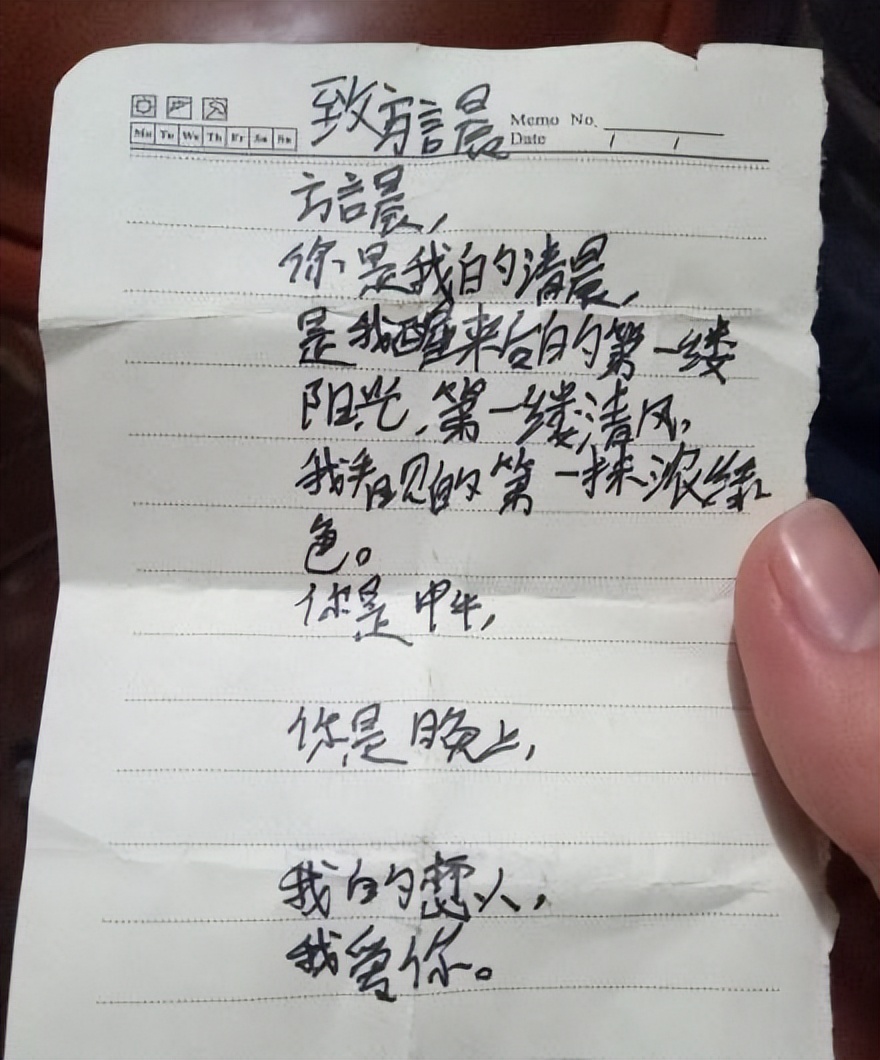 致方言晨
Memo No.
Mo Tu We Th Fr Sa Su
Date / /
方言晨,
你是我的清晨,
是我醒来后的第一缕
阳光,第一缕清风,
我看见的第一抹浓绿
色。
你是中午,
你是晚上,
我的恋人,
我爱你。